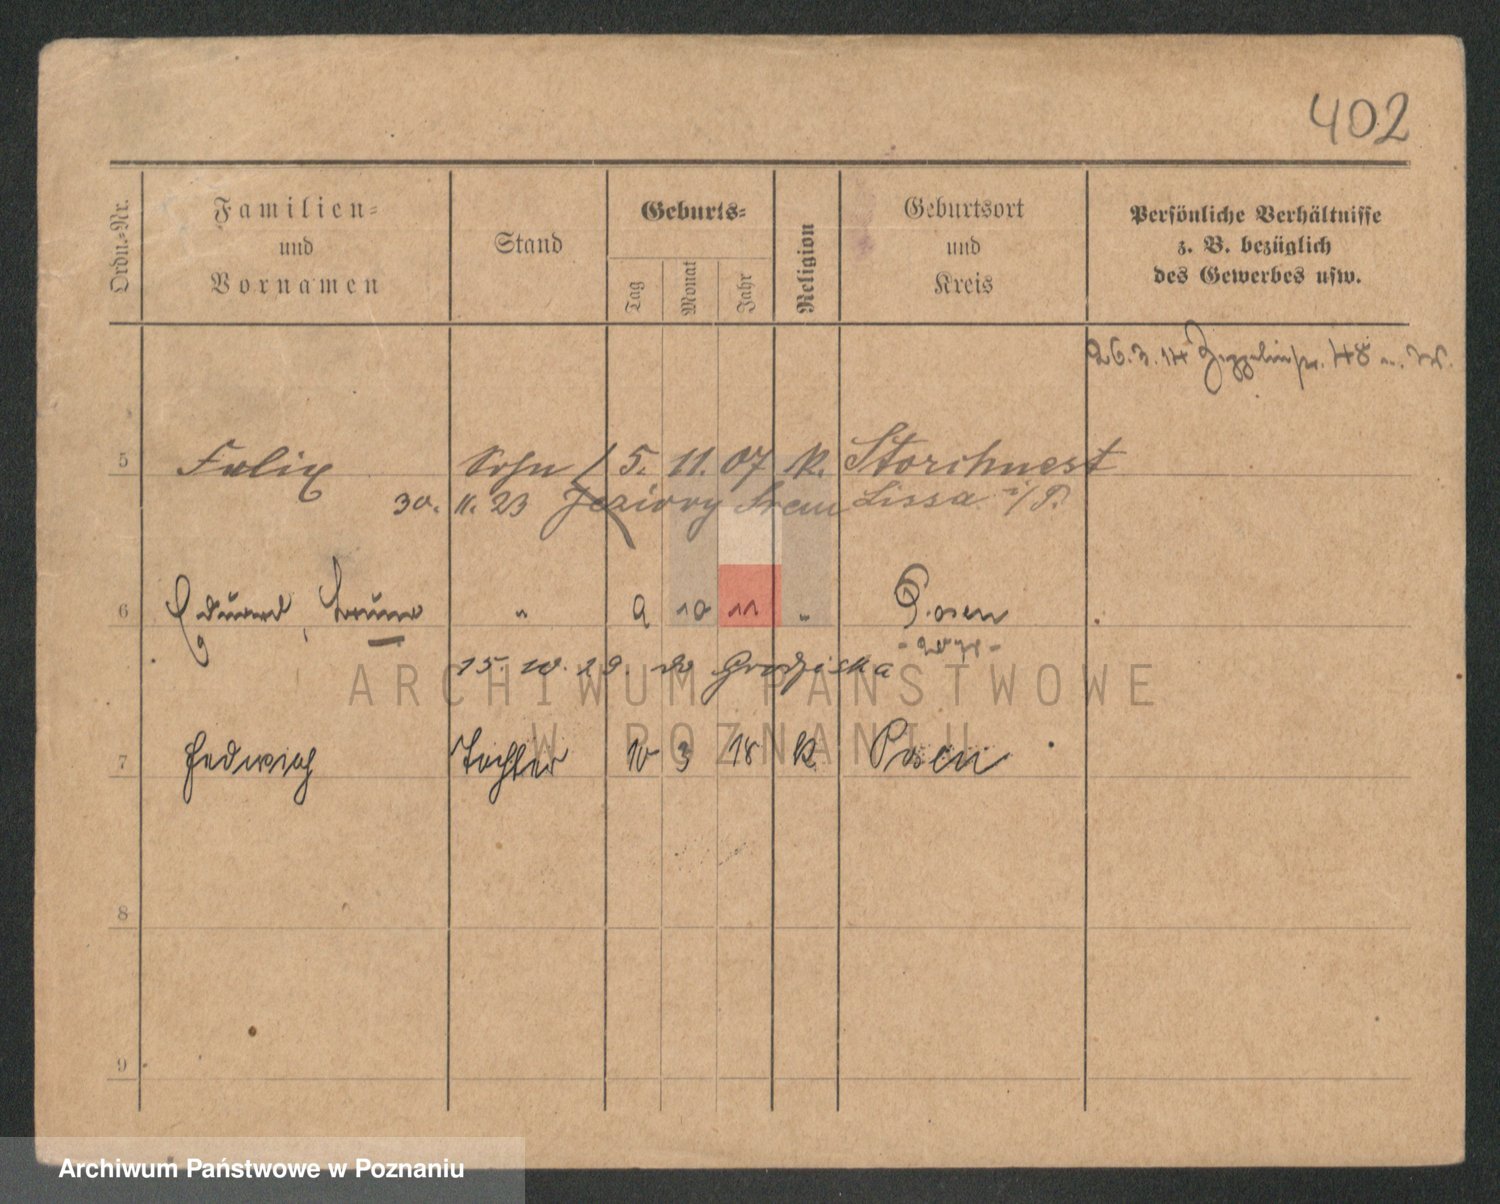 402
Ordn.-Nr.
Familien-
und
Vornamen
Stand
Geburts-
Tag
Monat
Jahr
Religion
Geburtsort
und
Kreis
Persönliche Verhältnisse
z. B. bezüglich
des Gewerbes usw.
26.3.14 Zeppelinstr. 48
5 Felix Sohn 5. 11. 07 k. Storchnest
30. 11. 23 Jeziory Śrem Lissa i/P.
6 Eduard, Bruno " 9 10 11 " Posen
15. 10. 29. do Grodziska
7 Hedwich Tochter 10 3 18 k Posen
8
9
ARCHIWUM PAŃSTWOWE
W POZNANIU
Archiwum Państwowe w Poznaniu